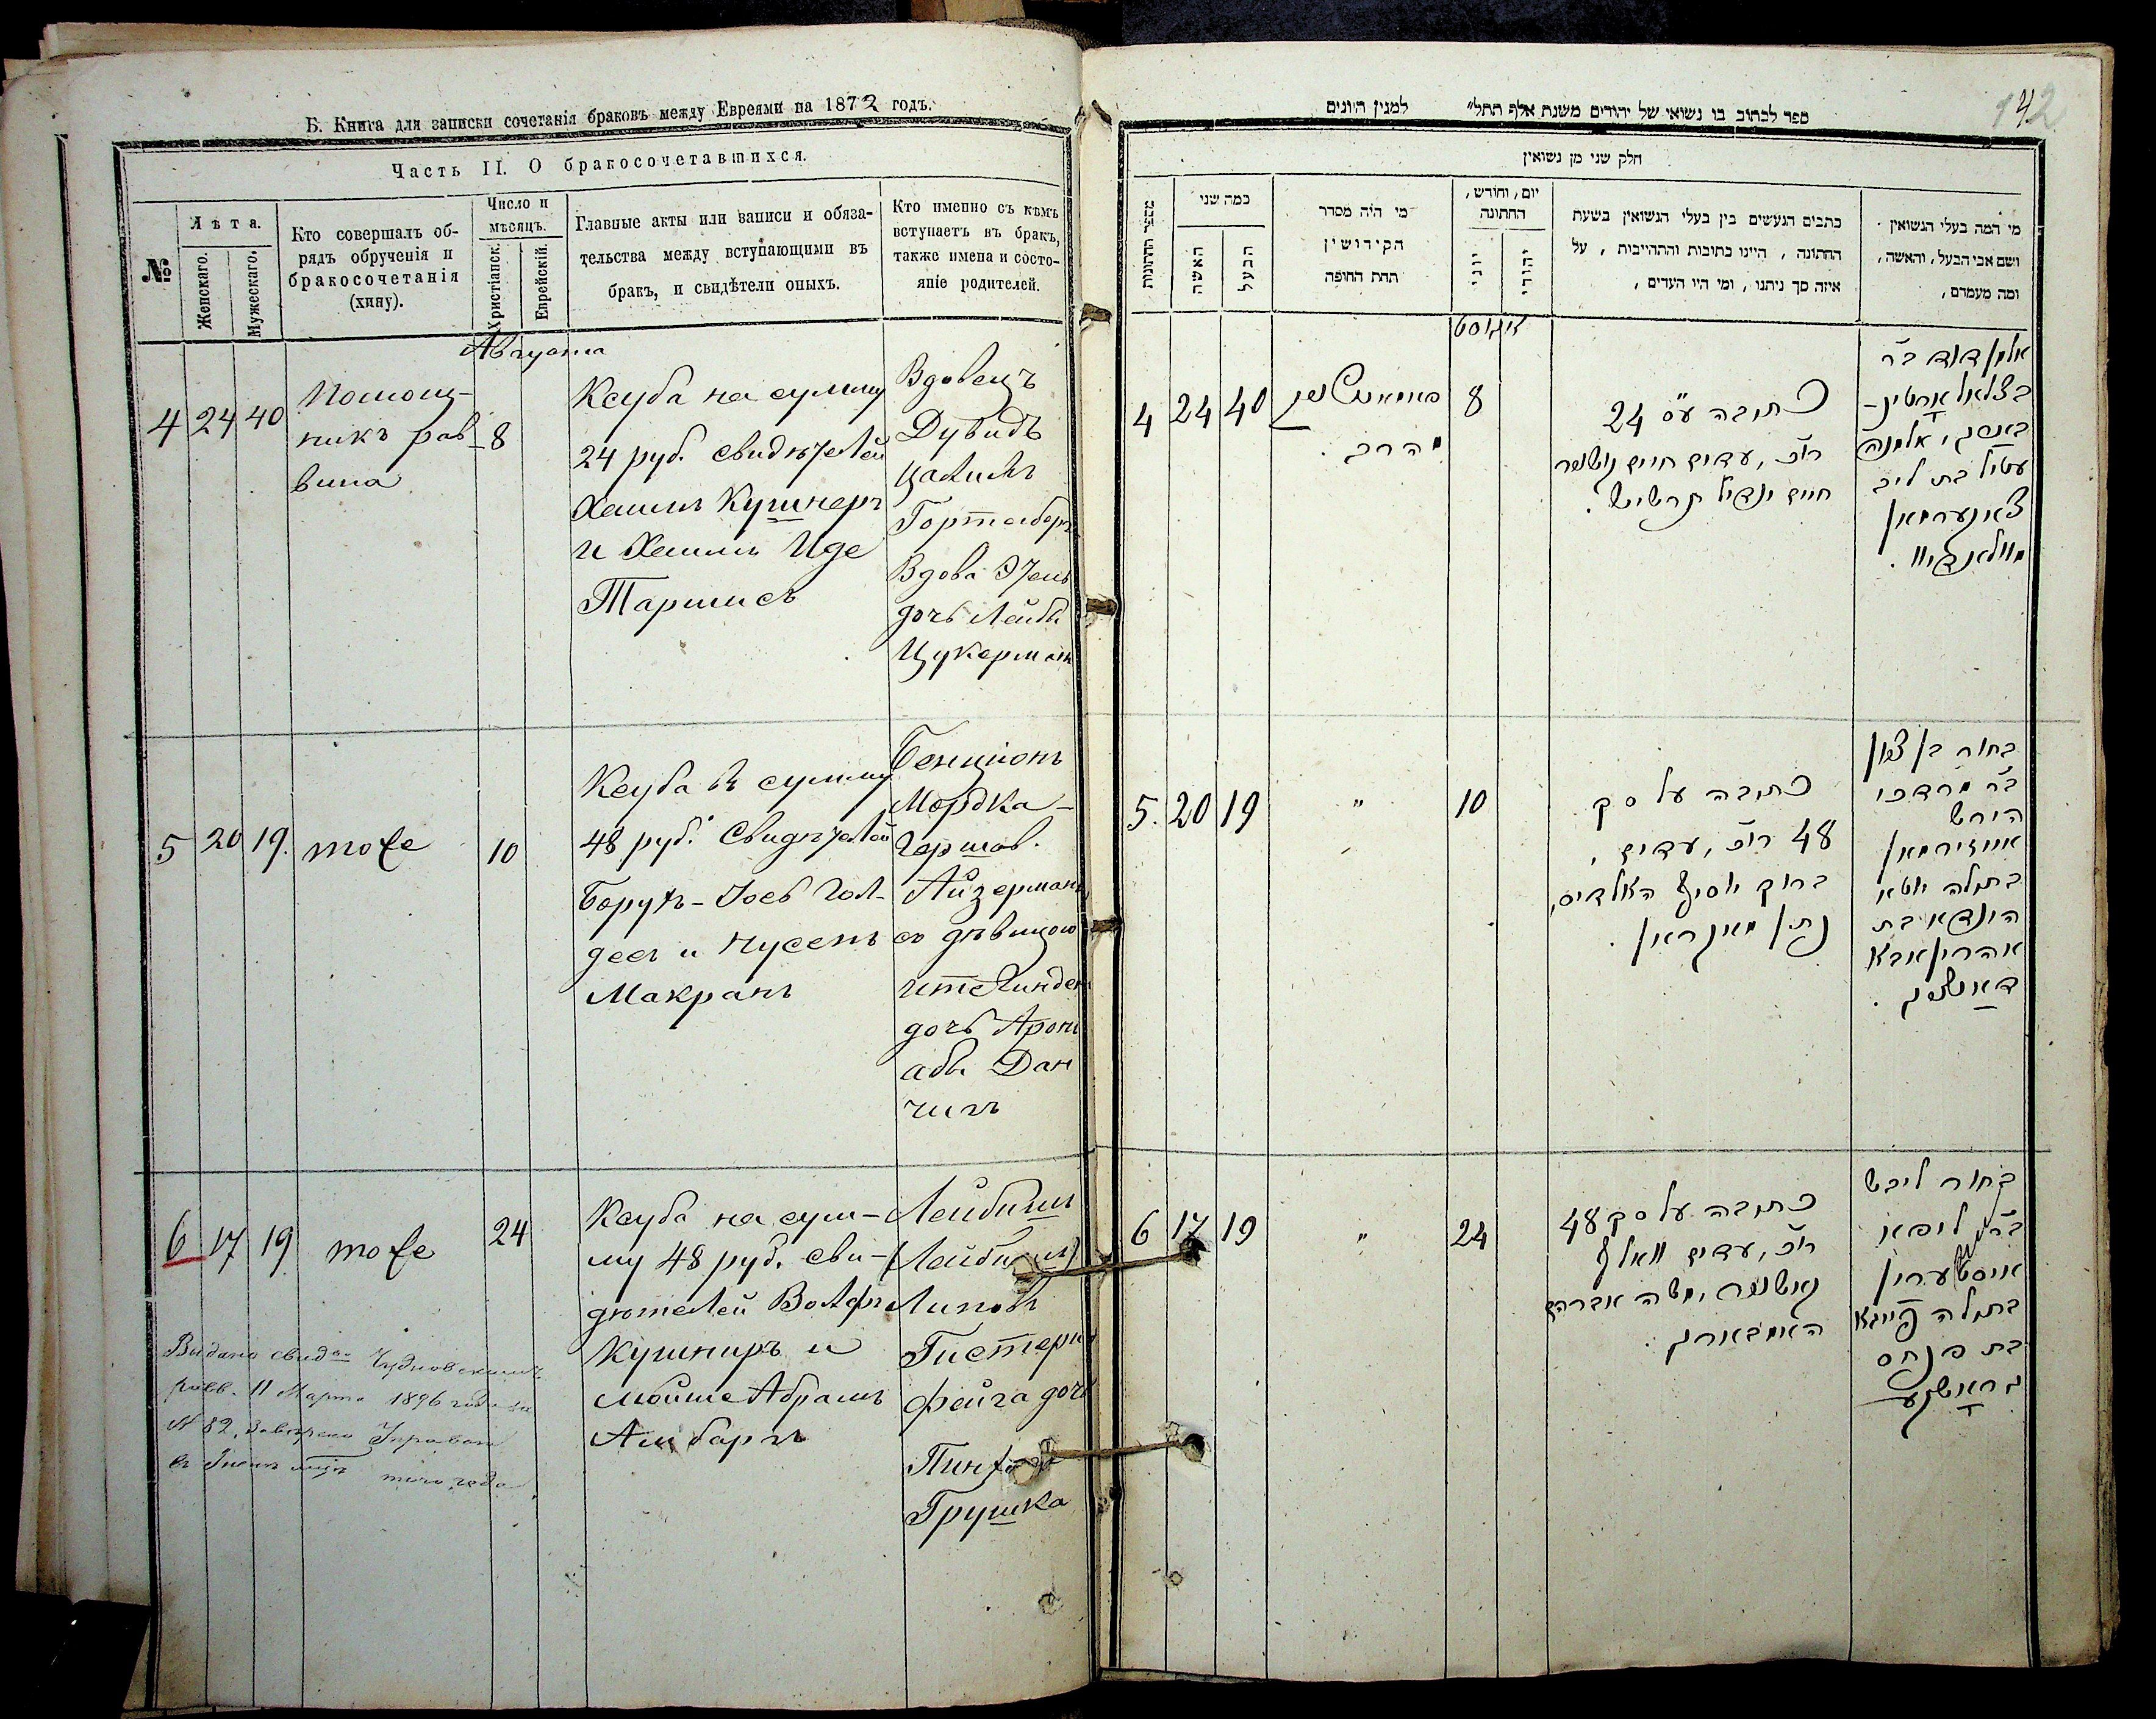 Б. Книга для записки сочетанія браковъ между Евреями на 1872 годъ.
Часть II. О бракосочетавшихся.
№
Лѣта.
Женскаго.
Мужескаго.
Кто совершалъ об-
рядъ обрученія и
бракосочетанія
(хипу).
Число и
мѣсяцъ.
Христіанск.
Еврейскій.
Главные акты или записи и обяза-
тельства между вступающими въ
бракъ, и свидѣтели оныхъ.
Кто именно съ кѣмъ
вступаетъ въ бракъ,
также имена и состо-
яніе родителей.
Августа
4 24 40
Помощ-
никъ рав-
вина
8
Ксуба на сумму
24 руб. свидѣтелей
Хаимъ Кушнеръ
и Хаимъ Иде
Таршисъ
Вдовецъ
Дувидъ
Вдова Этель
дочь Лейби
Цукерманъ
5 20 19.
тоже
10
Ксуба въ сумму
48 руб. Свидѣтелей
Борухъ-Іосъ Гол-
десъ и Нусенъ
Макранъ
Бенціонъ
Мордка-
Гершов.
Айзерманъ
съ дѣвицою
дочь Арона
абы Дан
чигъ
6 17 19
тоже
24
Ксуба на сум-
му 48 руб. сви-
дѣтелей Вольфъ
Кушниръ и
Мойше Абрамъ
Амбаргъ
Лейбишъ
(Лейбишъ)
Липовъ
Гистеринъ
Фейга дочь
Пинхоса
Грушка
Видано свид. Чудновскимъ
равв. 11 Марта 1896 года за
№ 82, Завѣрено Управою
того года
142
ספר לכתוב בו נשואי של יהודים משנת אלף תתל״ למנין היונים
חלק שני מן נשואין
מספר החתונות
כמה שני
האשה
הבעל
מי היה מסדר
הקידושין
תחת החופה
יום, וחודש,
החתונה
יווני
יהודי
כתבים הנעשים בין בעלי הנשואין בשעת
החתונה, היינו כתובות והתחייבות, על
איזה סך ניתנו, ומי היו העדים,
מי המה בעלי הנשואין
ושם אבי הבעל, והאשה,
ומה מעמדם,
אויגוסט
4 24 40
הרב
8
כתובה ע״ס 24
רו״כ, עדים חיים קושנר
חיים יודיל תרשיש.
אלמן דוד ב״ר
בצלאל
אלמנה
עטיל בת ליב
צוקערמאן
5. 20 19
״
10
כתובה על סך
48 רו״כ, עדים,
ברוך יוסיף האלדיס,
נתן מאקראן.
בחור בן ציון
ב״ר מרדכי
הירש
אייזירמאן
בתולה יוטא
הינדא בת
אהרן אבא
דאנטשיג.
6 17 19
״
24
כתובה על סך 48
רו״כ, עדים וואלף
קאשנער, משה אברהם
האמבארג.
בחור ליבש
ב״ר ליפא
בתולה פייגא
בת פנחס
גראשקע